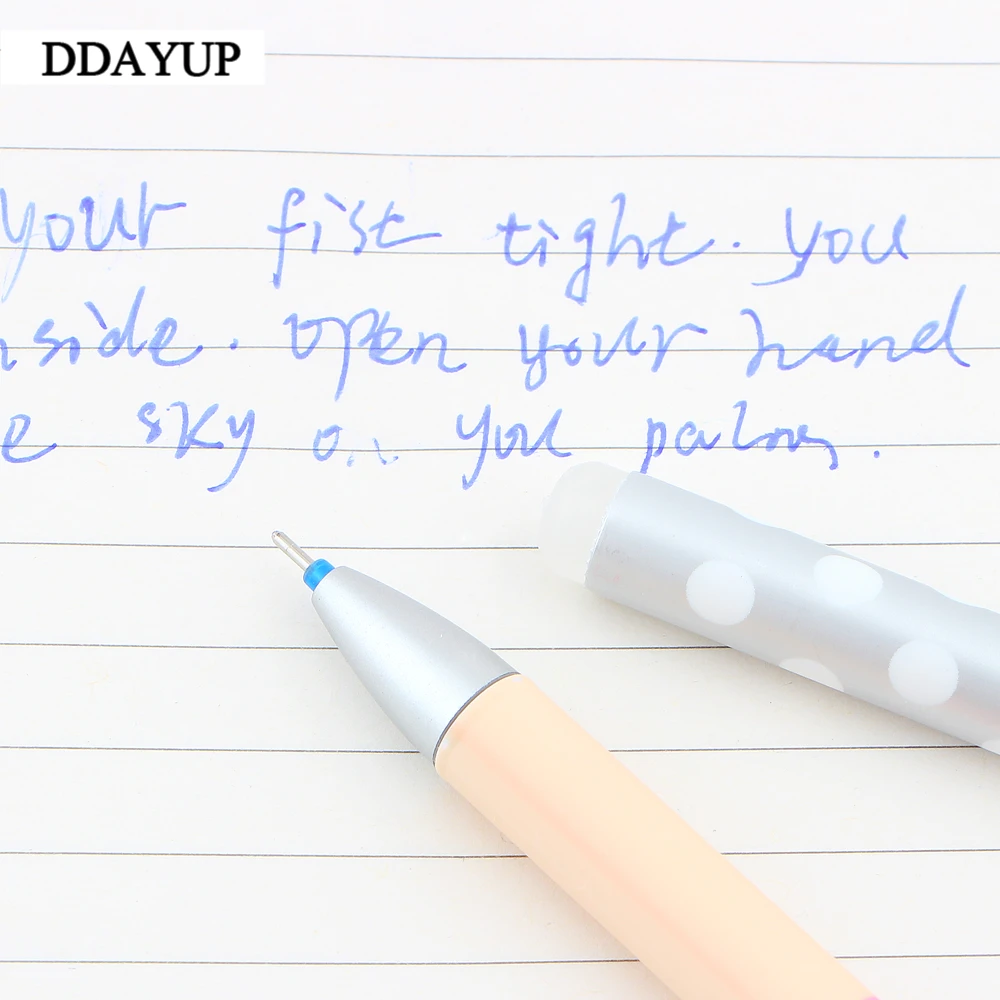 DDAYUP
your fist tight. you
nside. open your hand
e sky o you palms.